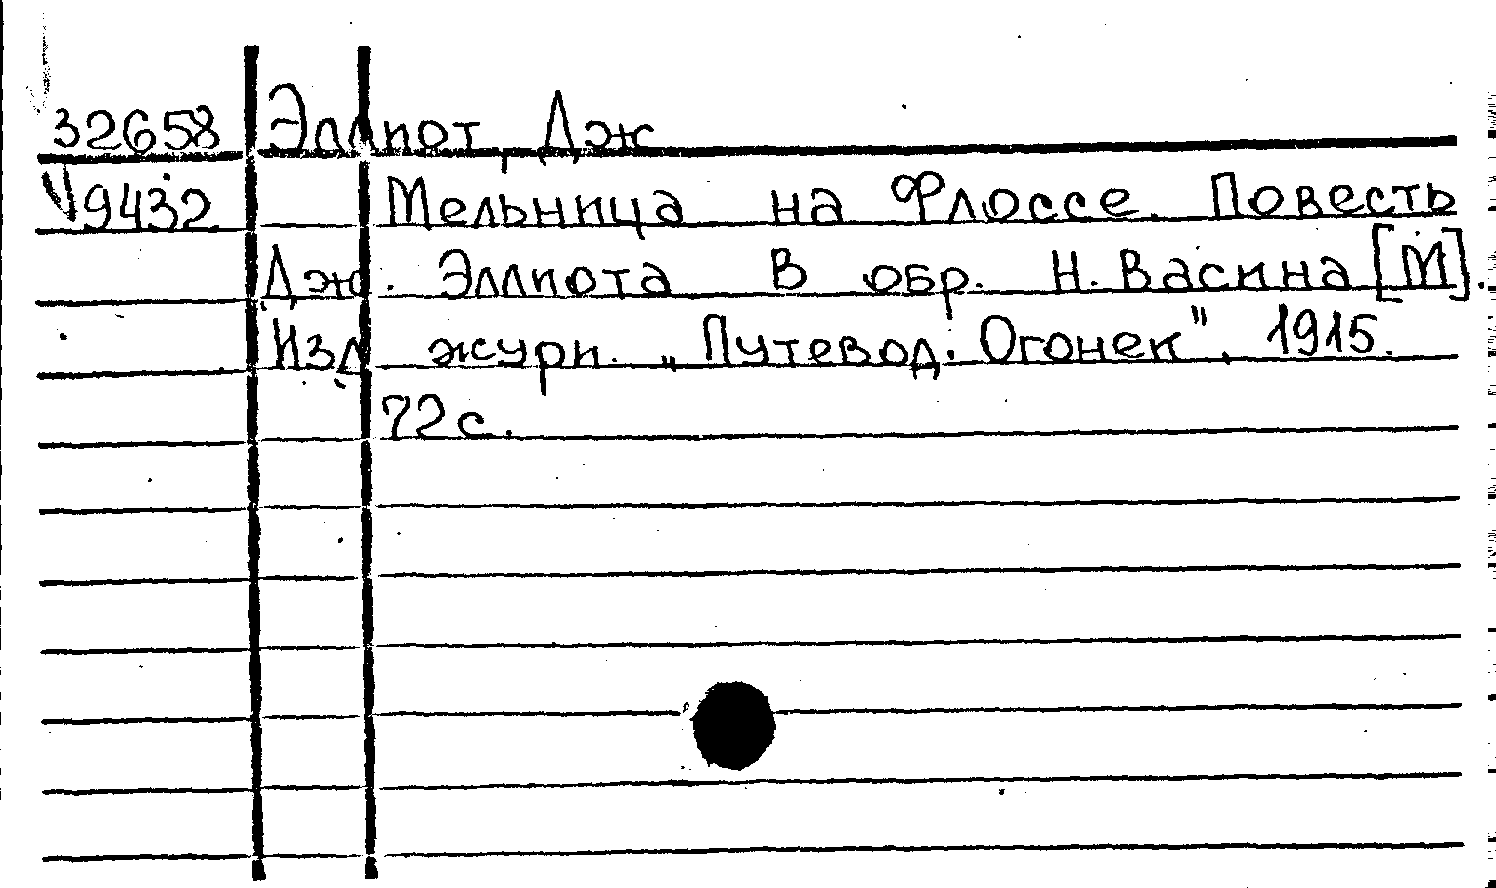 32658 Эллиот, Дж
V9432 Мельница на Флоссе. Повесть
Дж. Эллиота В обр. Н. Васина [М].
Изд. журн. „Путевод. Огонек", 1915.
72 с.